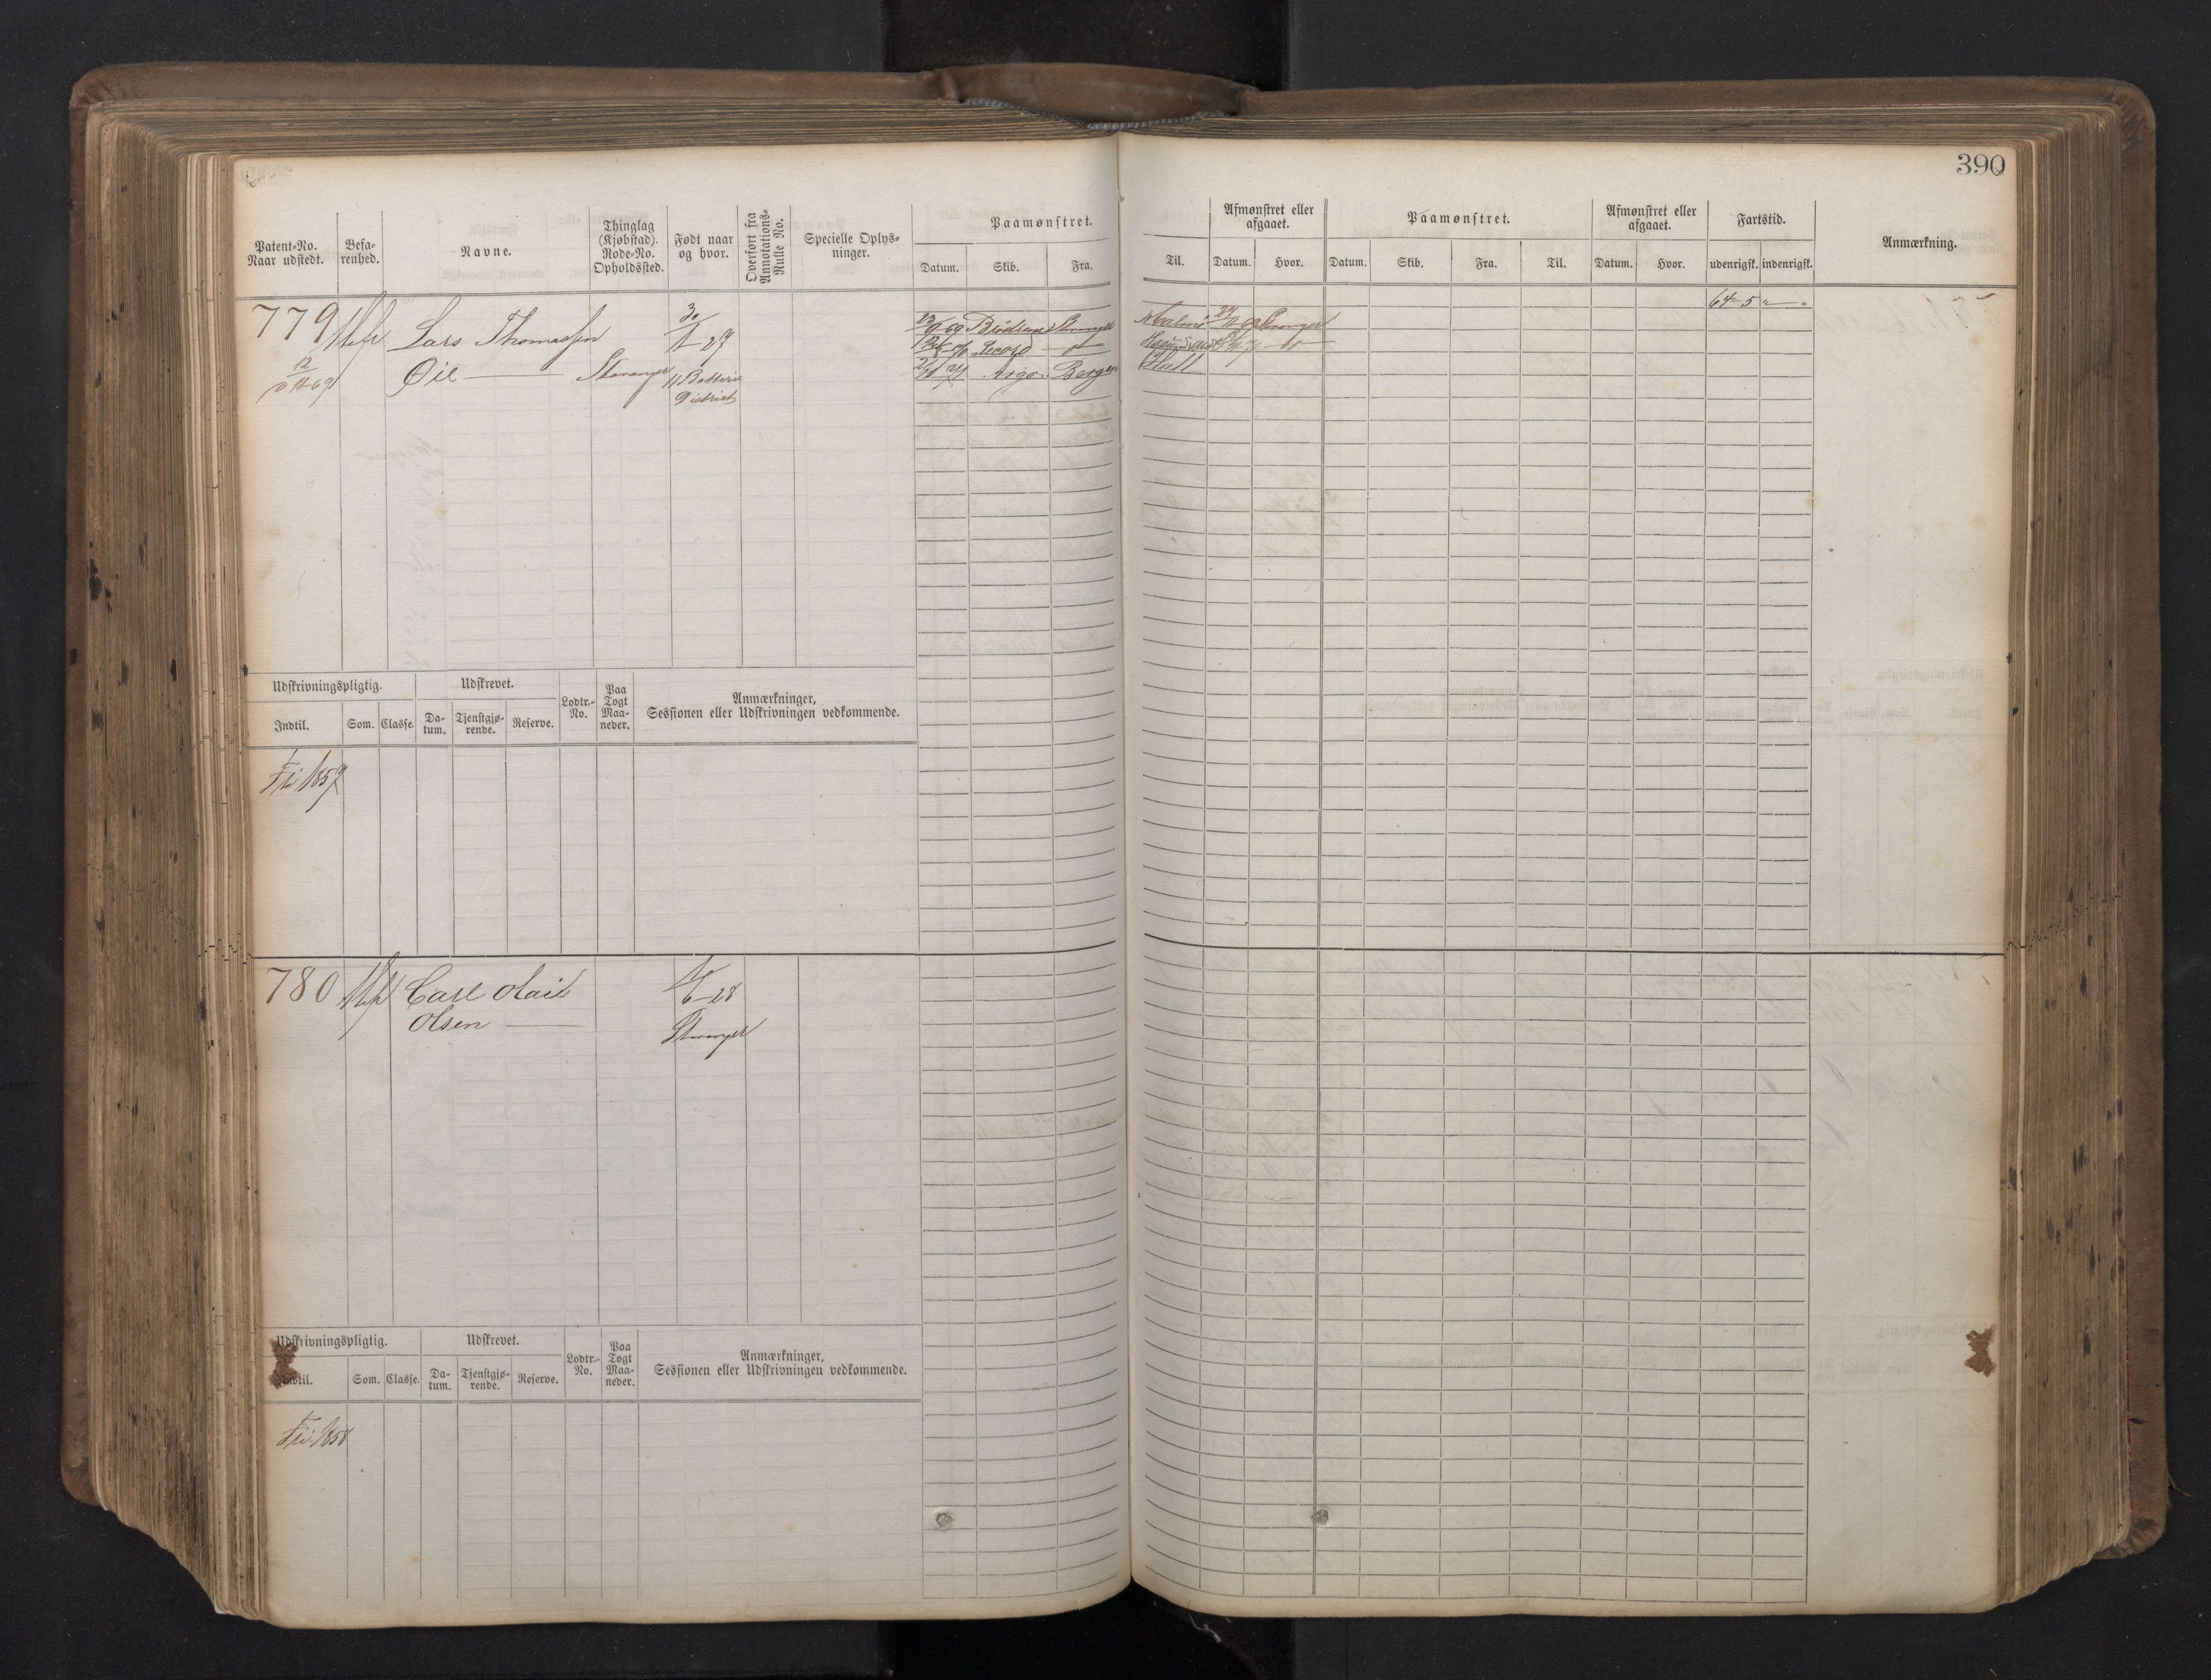 390
Patent-No.
Naar udstedt.
Befa-
renhed.
Navne.
Thinglag
(Kjøbstad).
Rode-No.
Opholdssted.
Født naar
og hvor.
Overført fra
Annotations-
Rulle No.
Specielle Oplys-
ninger.
Paamønstret.
Datum. Skib. Fra.
Til.
Afmønstret eller
afgaaet.
Datum. Hvor.
Paamønstret.
Datum. Skib. Fra. Til.
Afmønstret eller
afgaaet.
Datum. Hvor.
Fartstid.
udenrigsk. indenrigsk.
Anmærkning.
779 Lars Thomassen
Øie Stavanger
30/1 27
Batterie
District
12
69
Stavanger
Record
Argo Bergen
Hull
Stavanger
64-5
Udskrivningspligtig.
Indtil. Som. Classe.
Udskrevet.
Da-
tum.
Tjenstgjø-
rende.
Reserve.
Lodtr.-
No.
Paa
Togt
Maa-
neder.
Anmærkninger,
Sessionen eller Udskrivningen vedkommende.
Fri 1857
780 Carl Olai
Olsen
28
Stavanger
Udskrivningspligtig.
Indtil. Som. Classe.
Udskrevet.
Da-
tum.
Tjenstgjø-
rende.
Reserve.
Lodtr.-
No.
Paa
Togt
Maa-
neder.
Anmærkninger,
Sessionen eller Udskrivningen vedkommende.
Fri 1858